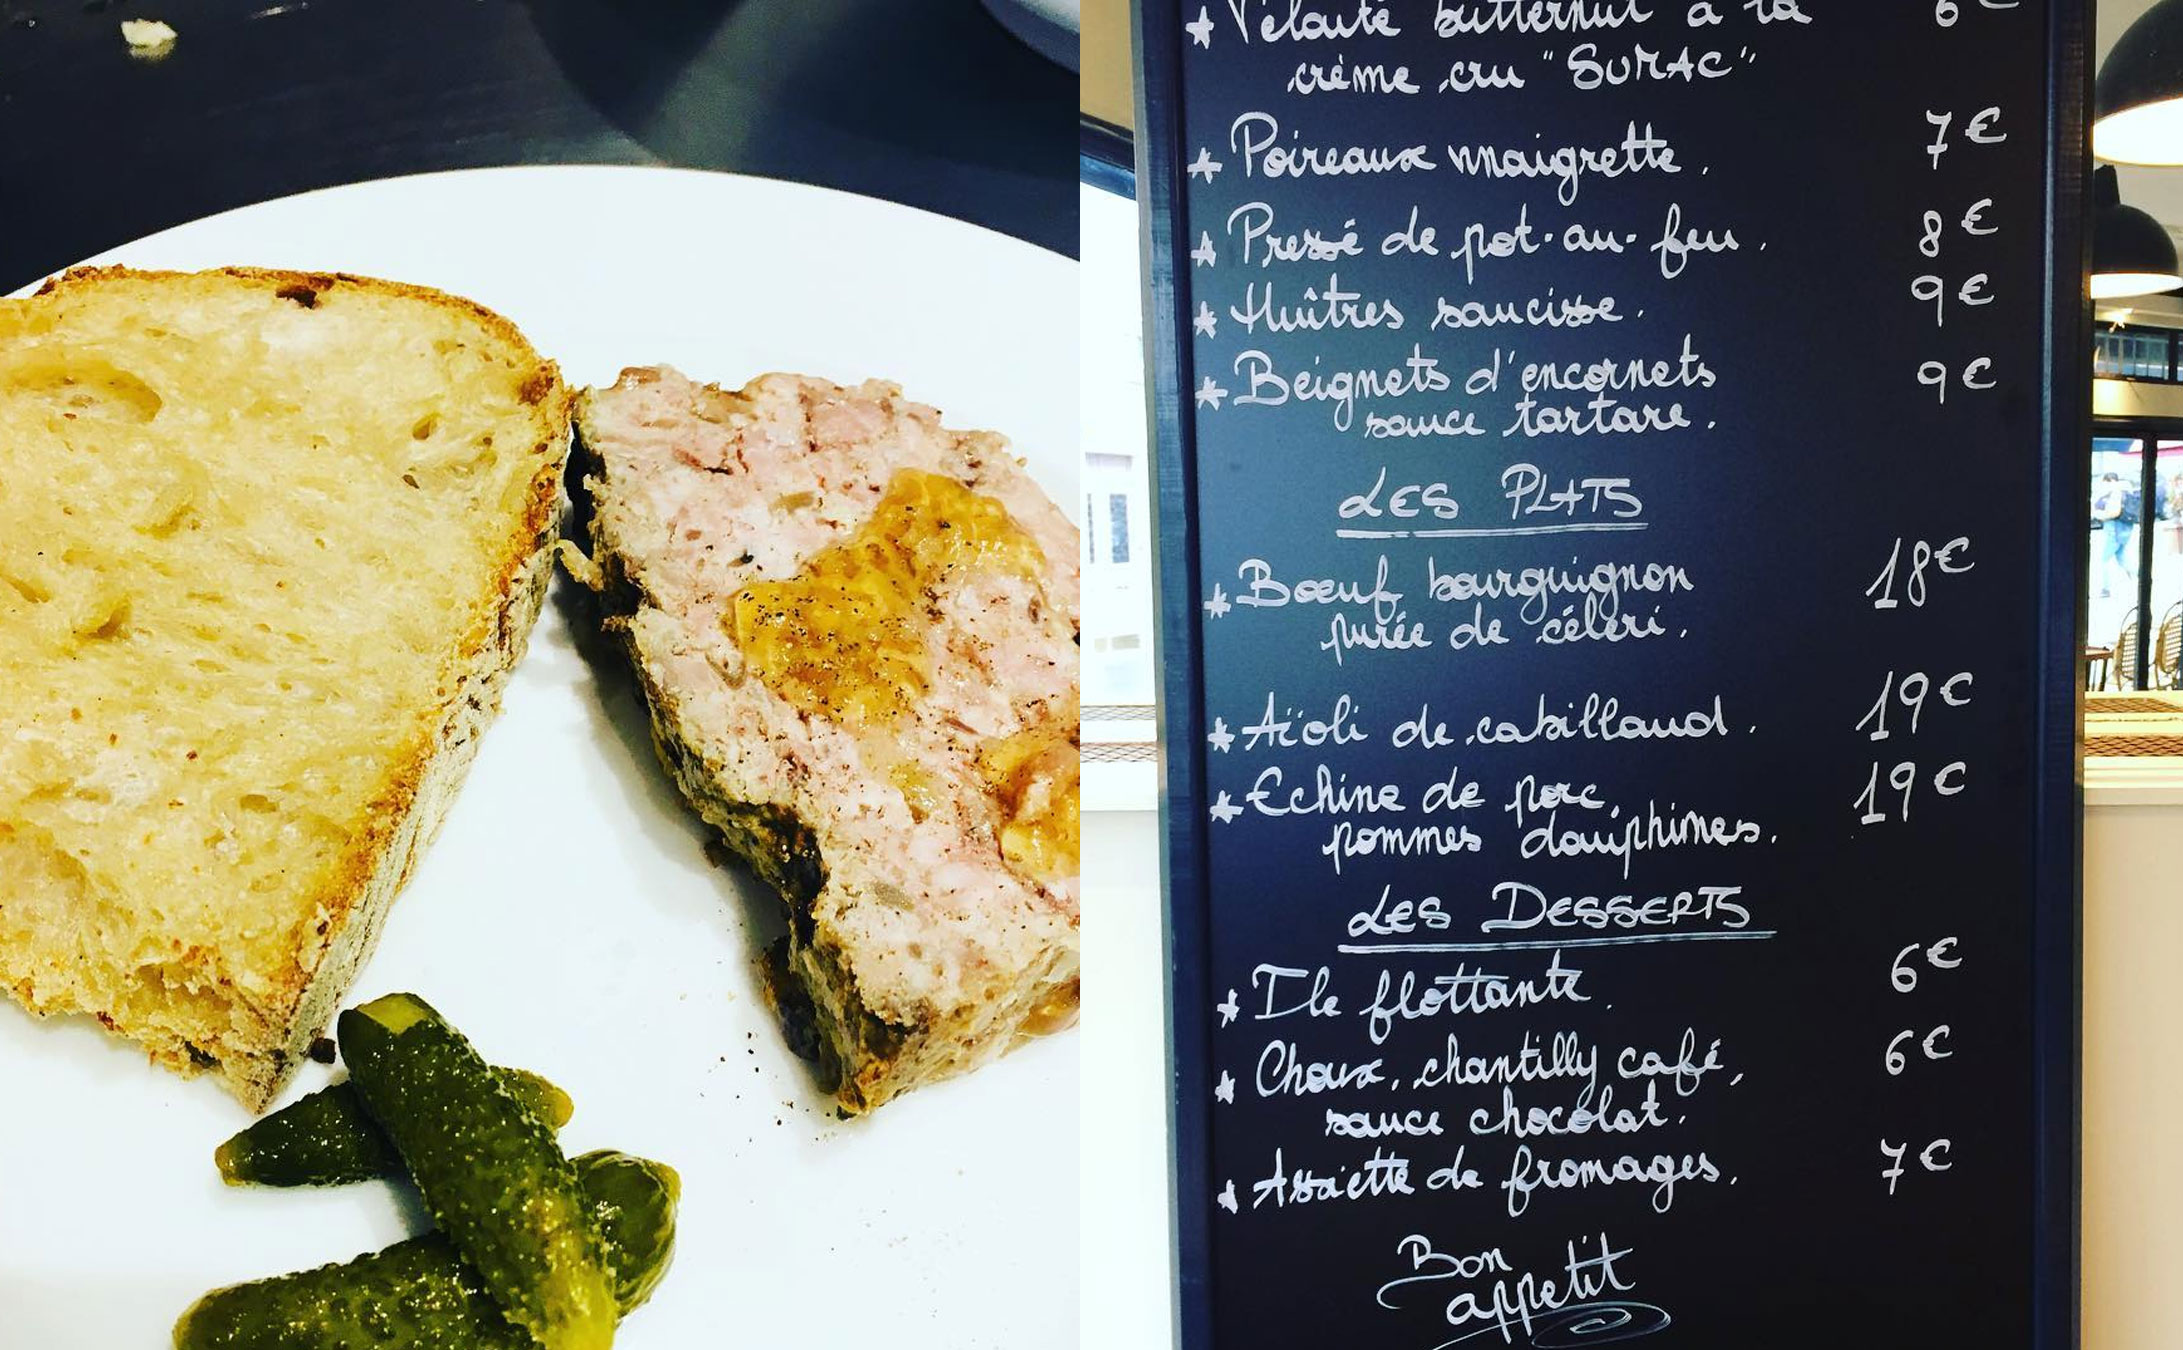 ★ Velouté butternut à la 6€
crème cru "SUMAC"
★ Poireaux vinaigrette. 7€
★ Pressé de pot-au-feu. 8€
★ Huîtres saucisse. 9€
★ Beignets d'encornets 9€
sauce tartare.
LES PLATS
★ Bœuf bourguignon 18€
purée de céleri.
★ Aïoli de cabillaud. 19€
★ Echine de porc, 19€
pommes dauphines.
LES DESSERTS
★ Ile flottante. 6€
★ Choux, chantilly café, 6€
sauce chocolat.
★ Assiette de fromages. 7€
Bon
appetit